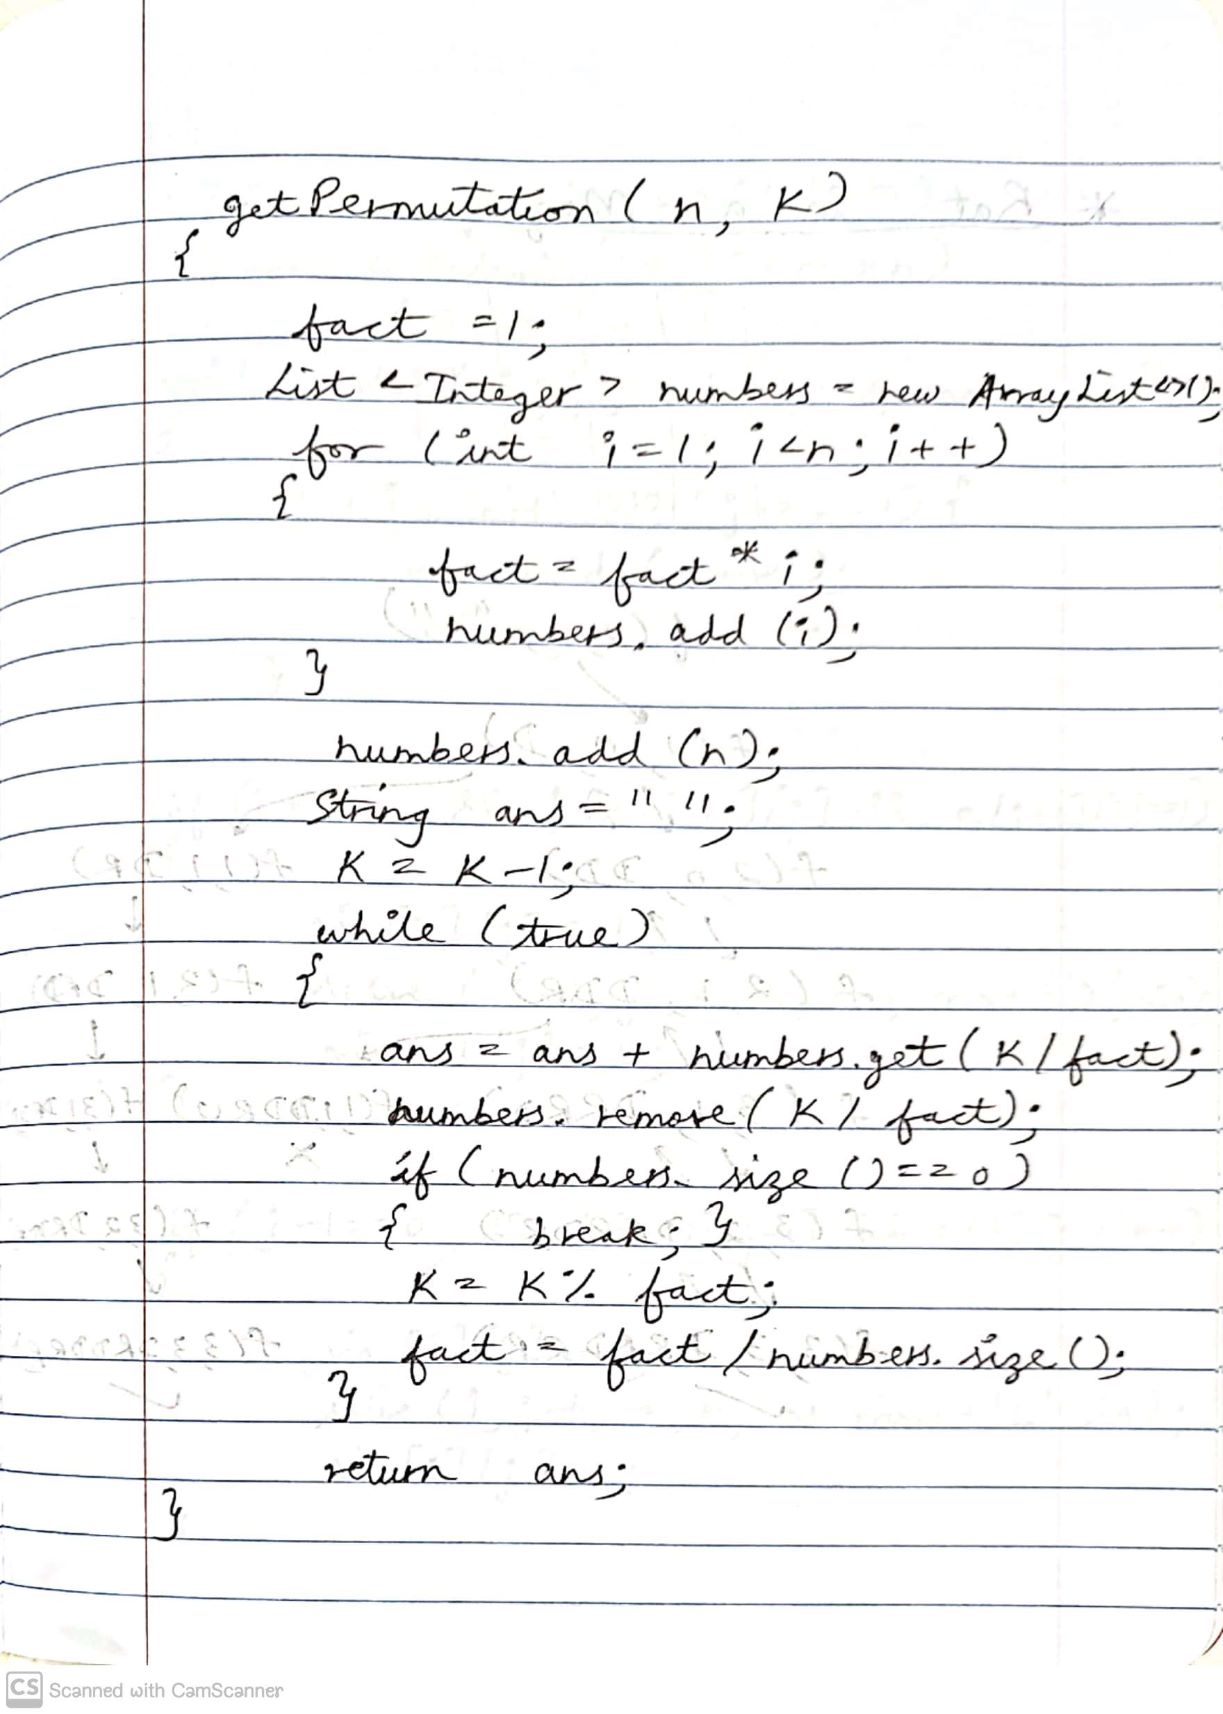 getPermutation (n, K)
{
fact =1;
List <Integer> numbers = new ArrayList<>();
for (int i=1; i<n; i++)
{
fact = fact * i;
numbers.add (i);
}
numbers.add (n);
String ans = " ";
K = K-1;
while (true)
{
ans = ans + numbers.get (K/fact);
numbers.remove (K / fact);
if (numbers.size () == 0)
{ break; }
K = K % fact;
fact = fact / numbers.size ();
}
return ans;
}
CS Scanned with CamScanner